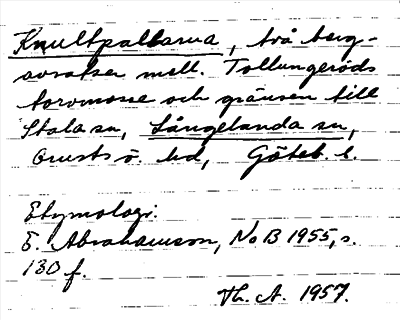 Knultpallarna, två berg-
avsatser mell. Tollungeröds
torvmosse och gränsen till
Stala sn, Långelanda sn,
Orusts ö. hd, Göteb. l.
Etymologi:
E. Abrahamson, NoB 1955, s.
130 f.
Th. A. 1957.